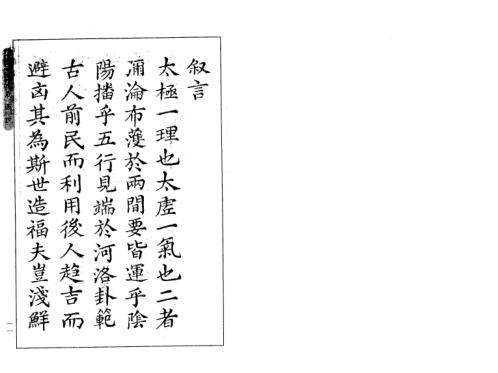 叙言
太極一理也太虛一氣也二者
彌淪布濩於兩間要皆運乎陰
陽播乎五行見端於河洛卦範
古人前民而利用後人趋吉而
避卤其為斯世造福夫豈淺鮮